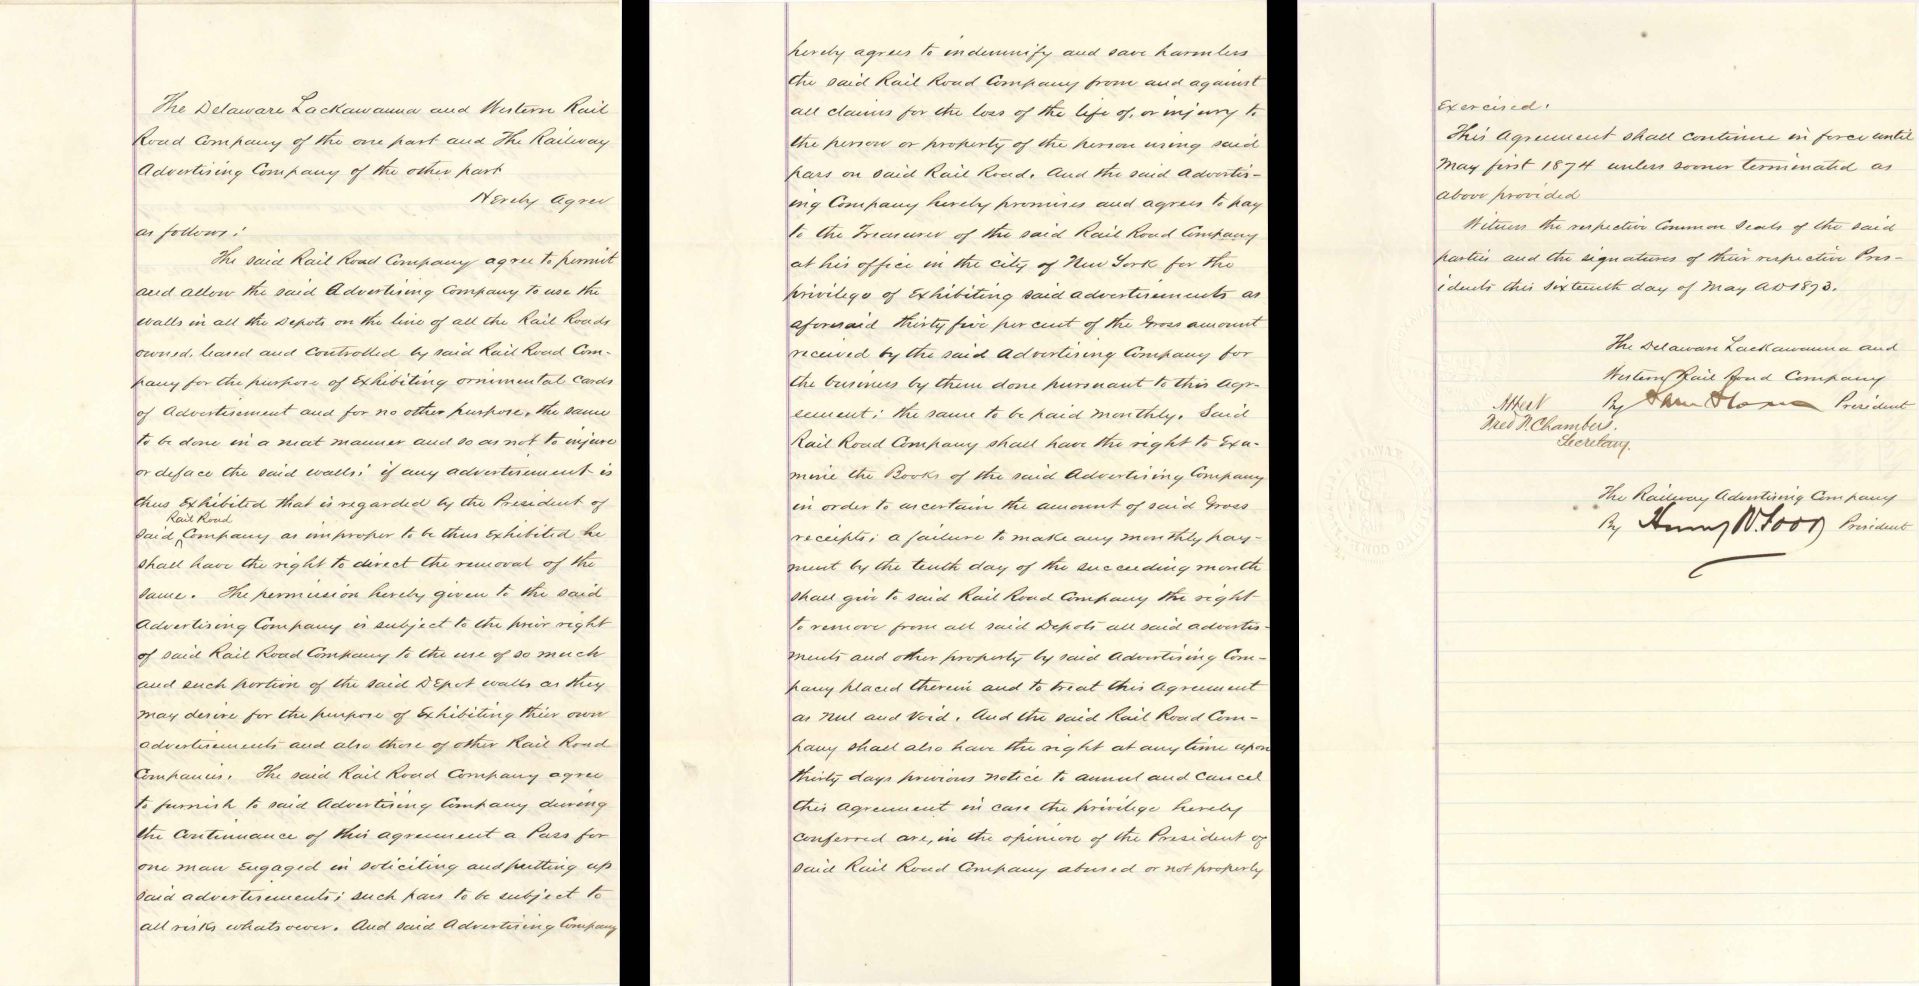 The Delaware Lackawanna and Western Rail
Road Company of the one part and The Railway
Advertising Company of the other part
Hereby Agree
as follows:
The said Rail Road Company agree to permit
and allow the said Advertising Company to use the
walls in all the Depots on the line of all the Rail Roads
owned, leased and controlled by said Rail Road Com-
pany for the purpose of Exhibiting ornimental Cards
of Advertisement and for no other purpose, the same
to be done in a neat manner and so as not to injure
or deface the said walls; if any advertisement is
thus Exhibited that is regarded by the President of
Rail Road
said Company as improper to be thus Exhibited he
shall have the right to direct the removal of the
same. The permission hereby given to the said
Advertising Company is subject to the prior right
of said Rail Road Company to the use of so much
and such portion of the said Depot walls as they
may desire for the purpose of Exhibiting their own
advertisements and also those of other Rail Road
Companies. The said Rail Road Company agree
to furnish to said Advertising Company during
the Continuance of this agreement a Pass for
one man Engaged in soliciting and putting up
said advertisements; such pass to be subject to
all risks whatsoever. And said Advertising Company
hereby agrees to indemnify and save harmless
the said Rail Road Company from and against
all claims for the loss of the life of, or injury to
the person or property of the person using said
pass on said Rail Road. And the said Advertis-
ing Company hereby promises and agrees to pay
to the Treasurer of the said Rail Road Company
at his office in the city of New York for the
privilege of Exhibiting said advertisements as
aforesaid thirty five per cent of the Gross amount
received by the said Advertising Company for
the business by them done pursuant to this Agr-
eement; the same to be paid monthly. Said
Rail Road Company shall have the right to Exa-
mine the Books of the said Advertising Company
in order to ascertain the amount of said Gross
receipts; a failure to make any monthly pay-
ment by the tenth day of the succeeding month
shall give to said Rail Road Company the right
to remove from all said Depots all said advertis-
ments and other property by said Advertising Com-
pany placed therein and to treat this Agreement
as Nul and Void. And the said Rail Road Com-
pany shall also have the right at any time upon
thirty days previous notice to annul and Cancel
this Agreement in case the privilege hereby
conferred are, in the opinion of the President of
said Rail Road Company abused or not properly
Exercised.
This Agreement shall continue in force until
May first 1874 unless sooner terminated as
above provided
Witness the respective Common Seals of the said
parties and the signatures of their respective Pres-
idents this sixteenth day of May AD 1873.
The Delaware Lackawanna and
Western Rail Road Company
By Sam Sloan President
Attest
Fred F. Chambers.
Secretary.
The Railway Advertising Company
By Henry W. President